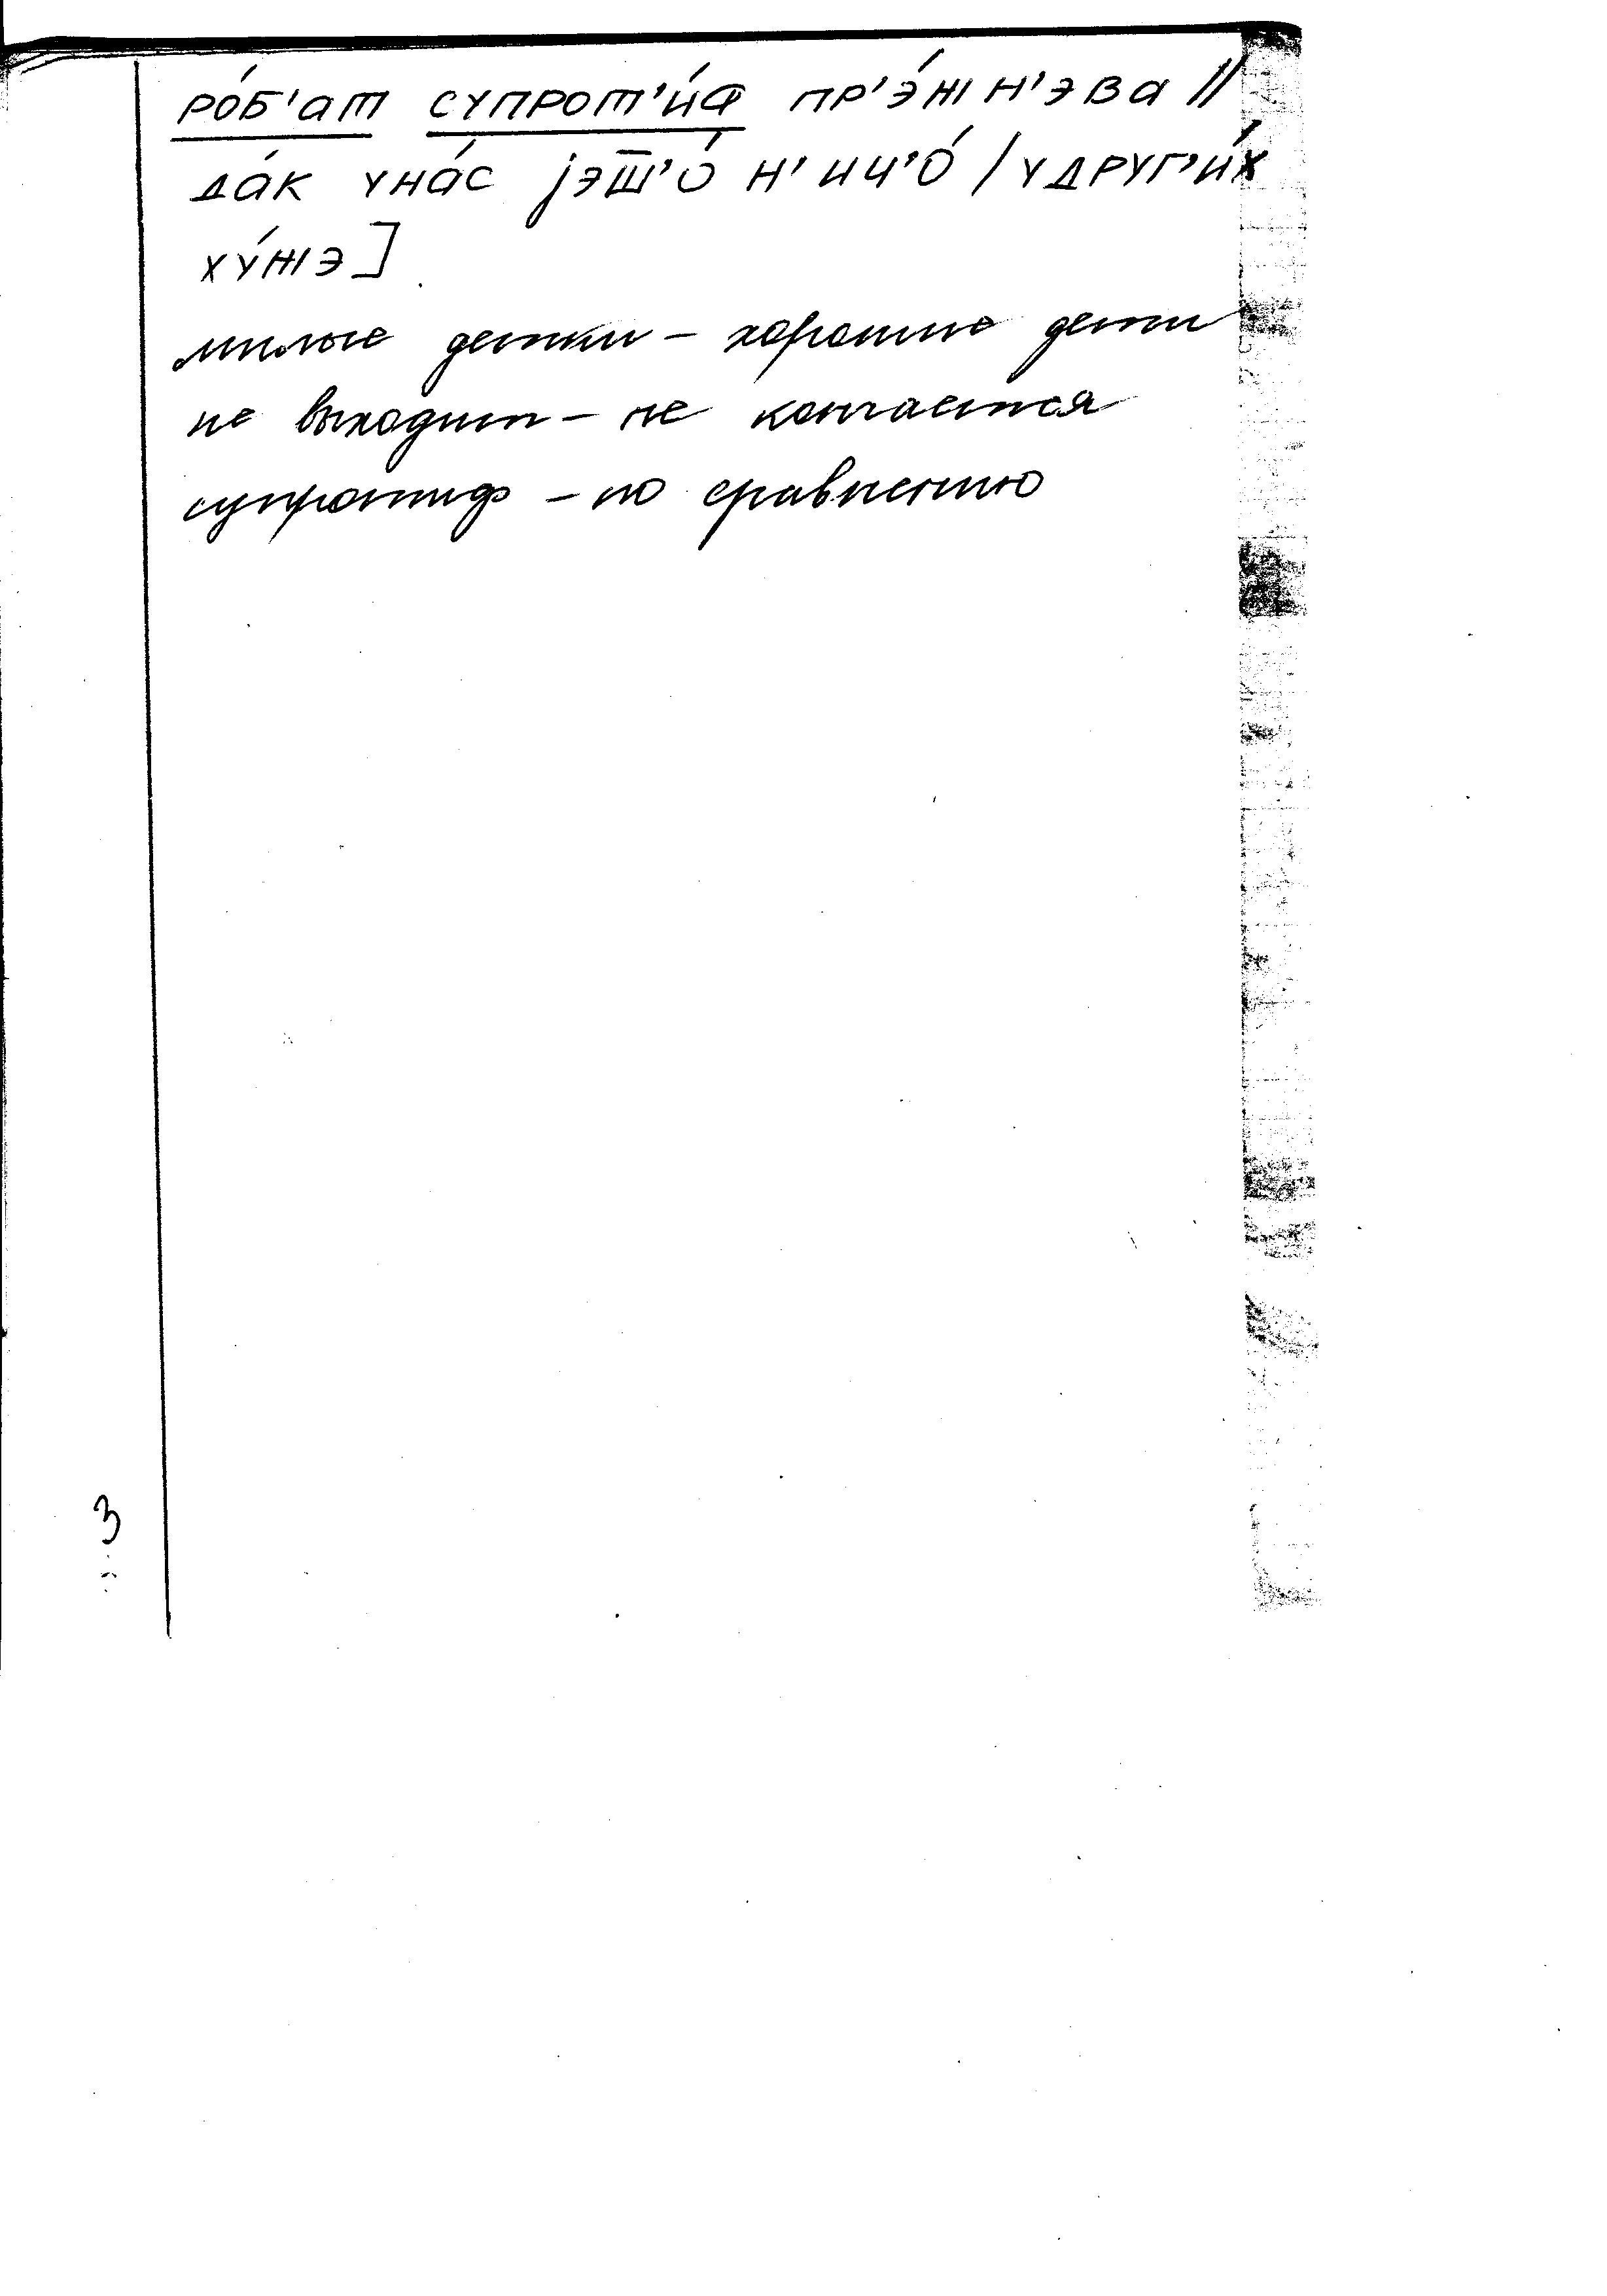 ро́б'ат супрот'и́ф пр'э́жн'эва //
да́к уна́с jэш̅'о́ н'ич'о́ / удруг'и́х
ху́жэ]
милые детки – хорошие дети
не выходит – не кончается
супротиф – по сравнению
3